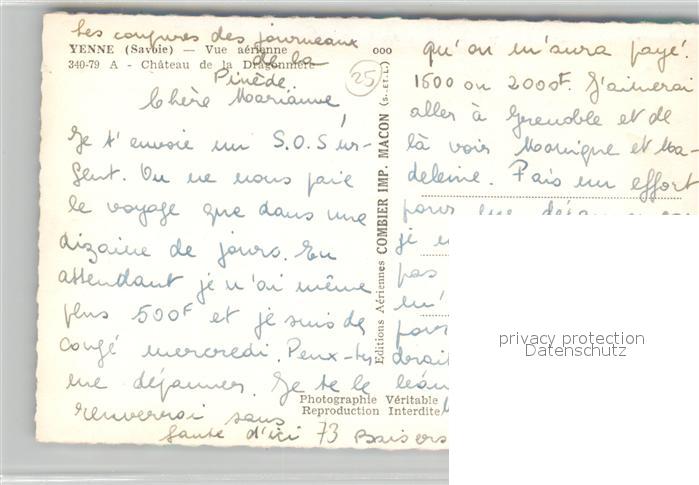 Les coupures des journeaux
de la
Pinède.
YENNE (Savoie) — Vue aérienne
340-79 A - Château de la Dragonnière
ooo
25
Chère Marianne,
Je t'envoie un S.O.S ur-
gent. On ne nous paie
le voyage que dans une
dizaine de jours. En
attendant je n'ai même
plus 500F et je suis de
congé mercredi. Peux-tu
me dépanner. Je te le
renverrai sans
faute d'ici
Editions Aériennes COMBIER IMP. MACON (S.-ET-L.)
Photographie Véritable
Reproduction Interdite
qu'on m'aura payé.
1500 ou 2000F. J'aimerai
aller à Grenoble et de
là voir Monique et Ma-
deleine. Fais un effort
pour me
je
pas
m'
pour
droit
Baisers
privacy protection
Datenschutz